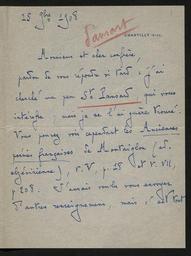 25 9bre 1908
Pansart
CHANTILLY
Monsieur et cher confrère
pardon de vous répondre si tard. J'ai
cherché un peu St Pansard qui vous
intrigue; mais je ne l'ai guère trouvé.
Vous pouvez voir cependant les Anciennes
poésies françaises de Montaiglon (ed.
elzévirienne), t. V. p. 25 et t. VII,
p 208. J'aurais voulu vous envoyer
d'autres renseignements, mais c'est tout